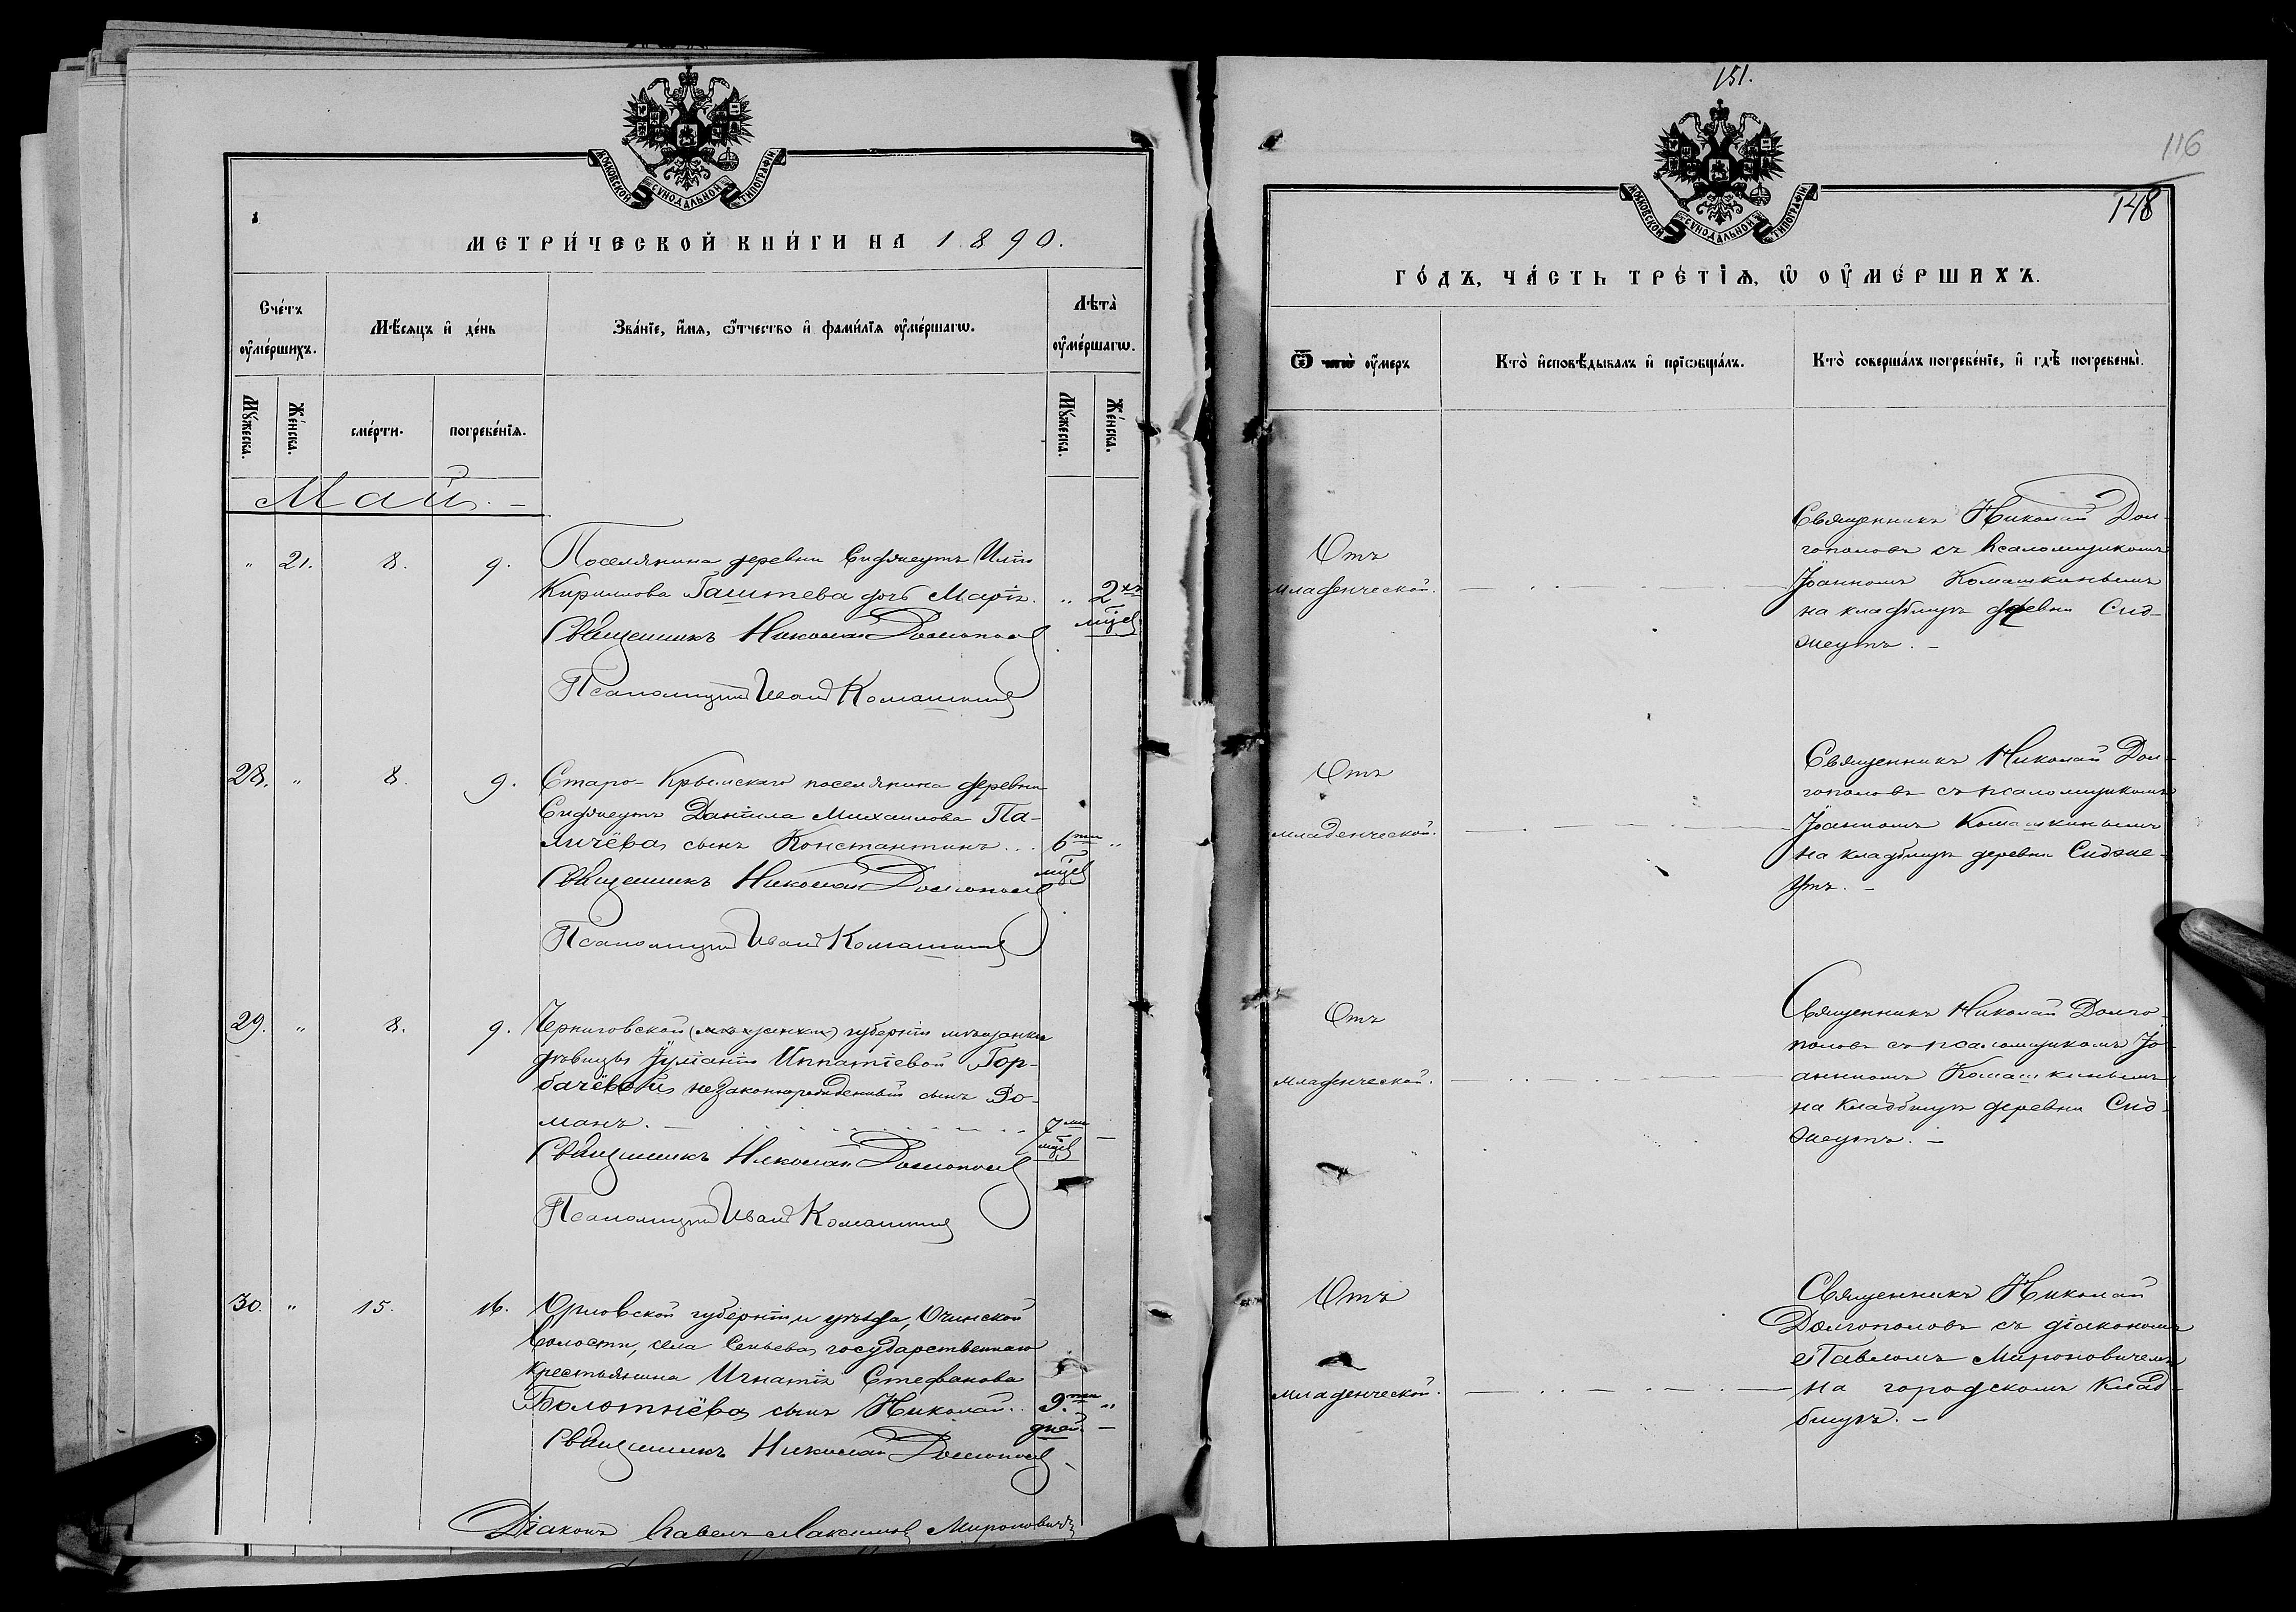 МОСКОВСКОЙ СѴНОДАЛЬНОЙ ТИПОГРАФІИ
МЕТРИ́ЧЕСКОЙ КНИ́ГИ НА 1890.
Сче́тъ ᲂу҆ме́ршихъ.
Мѣ́сяцъ и҆ де́нь
Зва́нїе, и҆́мѧ, ѻ҆́тчество и҆ фами́лїѧ ᲂу҆ме́ршагѡ.
Лѣта̀ ᲂу҆ме́ршагѡ.
Мꙋ́жеска.
Же́нска.
сме́рти.
погребе́нїѧ.
Мꙋ́жеска.
Же́нска.
Май. —
„ 21. 8. 9. Поселянина деревни Сиджеутъ Иліи
Кириллова Гаштева дочь Марія. „ 2хъ
мцев
Священникъ Николай Долгополов
Псаломщик Иван Комашкин
28. „ 8. 9. Старо-Крымскаго поселянина деревни
Сиджеутъ Даніила Михаилова Па-
личёва сынъ Константинъ... 6ти „
мцев
Священникъ Николай Долгополов
Псаломщик Иван Комашкин
29. „ 8. 9. Черниговской губерніи мѣщанки
дѣвицы Іуліаніи Ипатіевой Гор-
бачёвой незаконнорожденный сынъ Ро-
манъ. — 7ми —
мцев
Священникъ Николай Долгополов
Псаломщик Иван Комашкин
30. „ 15. 16. Орловской губерніи и уѣзда,
волости, села государственнаго
крестьянина Игнатія Стефанова
Болотнёва сынъ Николай. 9ти „
дней. —
Священникъ Николай Долгополов
Діаконъ Павелъ Максимов Мироновичъ
151.
116
148
МОСКОВСКОЙ СѴНОДАЛЬНОЙ ТИПОГРАФІИ
ГО́ДЪ, ЧА́СТЬ ТРЕ́ТІѦ, Ѡ҆ ОУ҆МЕ́РШИХЪ.
Ѿ чегѡ̀ ᲂу҆́меръ
Кто̀ и҆сповѣ́дывалъ и҆ прїѡбща́лъ.
Кто̀ соверша́лъ погребе́нїе, и҆ гдѣ̀ погребены̀.
Отъ
младенческой.
Священникъ Николай Дол-
гополовъ съ псаломщикомъ
Іоанномъ Комашкинымъ
на кладбищѣ деревни Сид-
жеутъ. —
Отъ
младенческой.
Священникъ Николай Дол-
гополовъ съ псаломщикомъ
Іоанномъ Комашкинымъ
на кладбищѣ деревни Сидже-
утъ. —
Отъ
младенческой.
Священникъ Николай Долго-
половъ съ псаломщикомъ Іо-
анномъ Комашкинымъ
на кладбищѣ деревни Сид-
жеутъ. —
Отъ
младенческой.
Священникъ Николай
Долгополовъ съ діакономъ
Павломъ Мироновичемъ
на городскомъ клад-
бищѣ. —